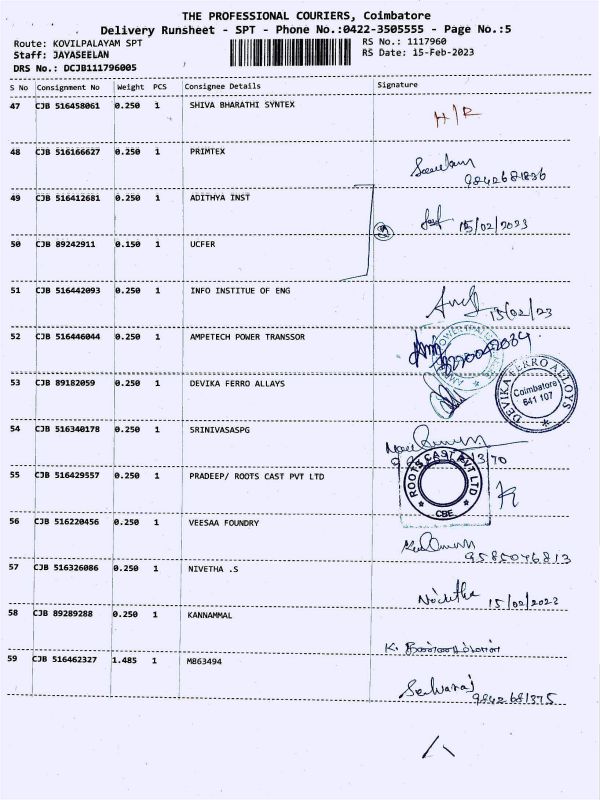 THE PROFESSIONAL COURIERS, Coimbatore
Delivery Runsheet - SPT - Phone No.:0422-3505555 - Page No.:5
Route: KOVILPALAYAM SPT RS No.: 1117960
Staff: JAYASEELAN RS Date: 15-Feb-2023
DRS No.: DCJB111796005
S No Consignment No Weight PCS Consignee Details Signature
47 CJB 516458061 0.250 1 SHIVA BHARATHI SYNTEX
H/R
48 CJB 516166627 0.250 1 PRIMTEX
9842681836
49 CJB 516412681 0.250 1 ADITHYA INST
15/02/2023
50 CJB 89242911 0.150 1 UCFER
51 CJB 516442093 0.250 1 INFO INSTITUE OF ENG
15/02/23
52 CJB 516446044 0.250 1 AMPETECH POWER TRANSSOR
53 CJB 89182059 0.250 1 DEVIKA FERRO ALLAYS
DEVIKA FERRO ALLOYS
Coimbatore
641 107
54 CJB 516340178 0.250 1 SRINIVASASPG
55 CJB 516429557 0.250 1 PRADEEP/ ROOTS CAST PVT LTD
ROOTS CAST PVT LTD
CBE
56 CJB 516220456 0.250 1 VEESAA FOUNDRY
9585046813
57 CJB 516326086 0.250 1 NIVETHA .S
Nivetha 15/02/2023
58 CJB 89289288 0.250 1 KANNAMMAL
59 CJB 516462327 1.485 1 M863494
Selvaraj 9842681375